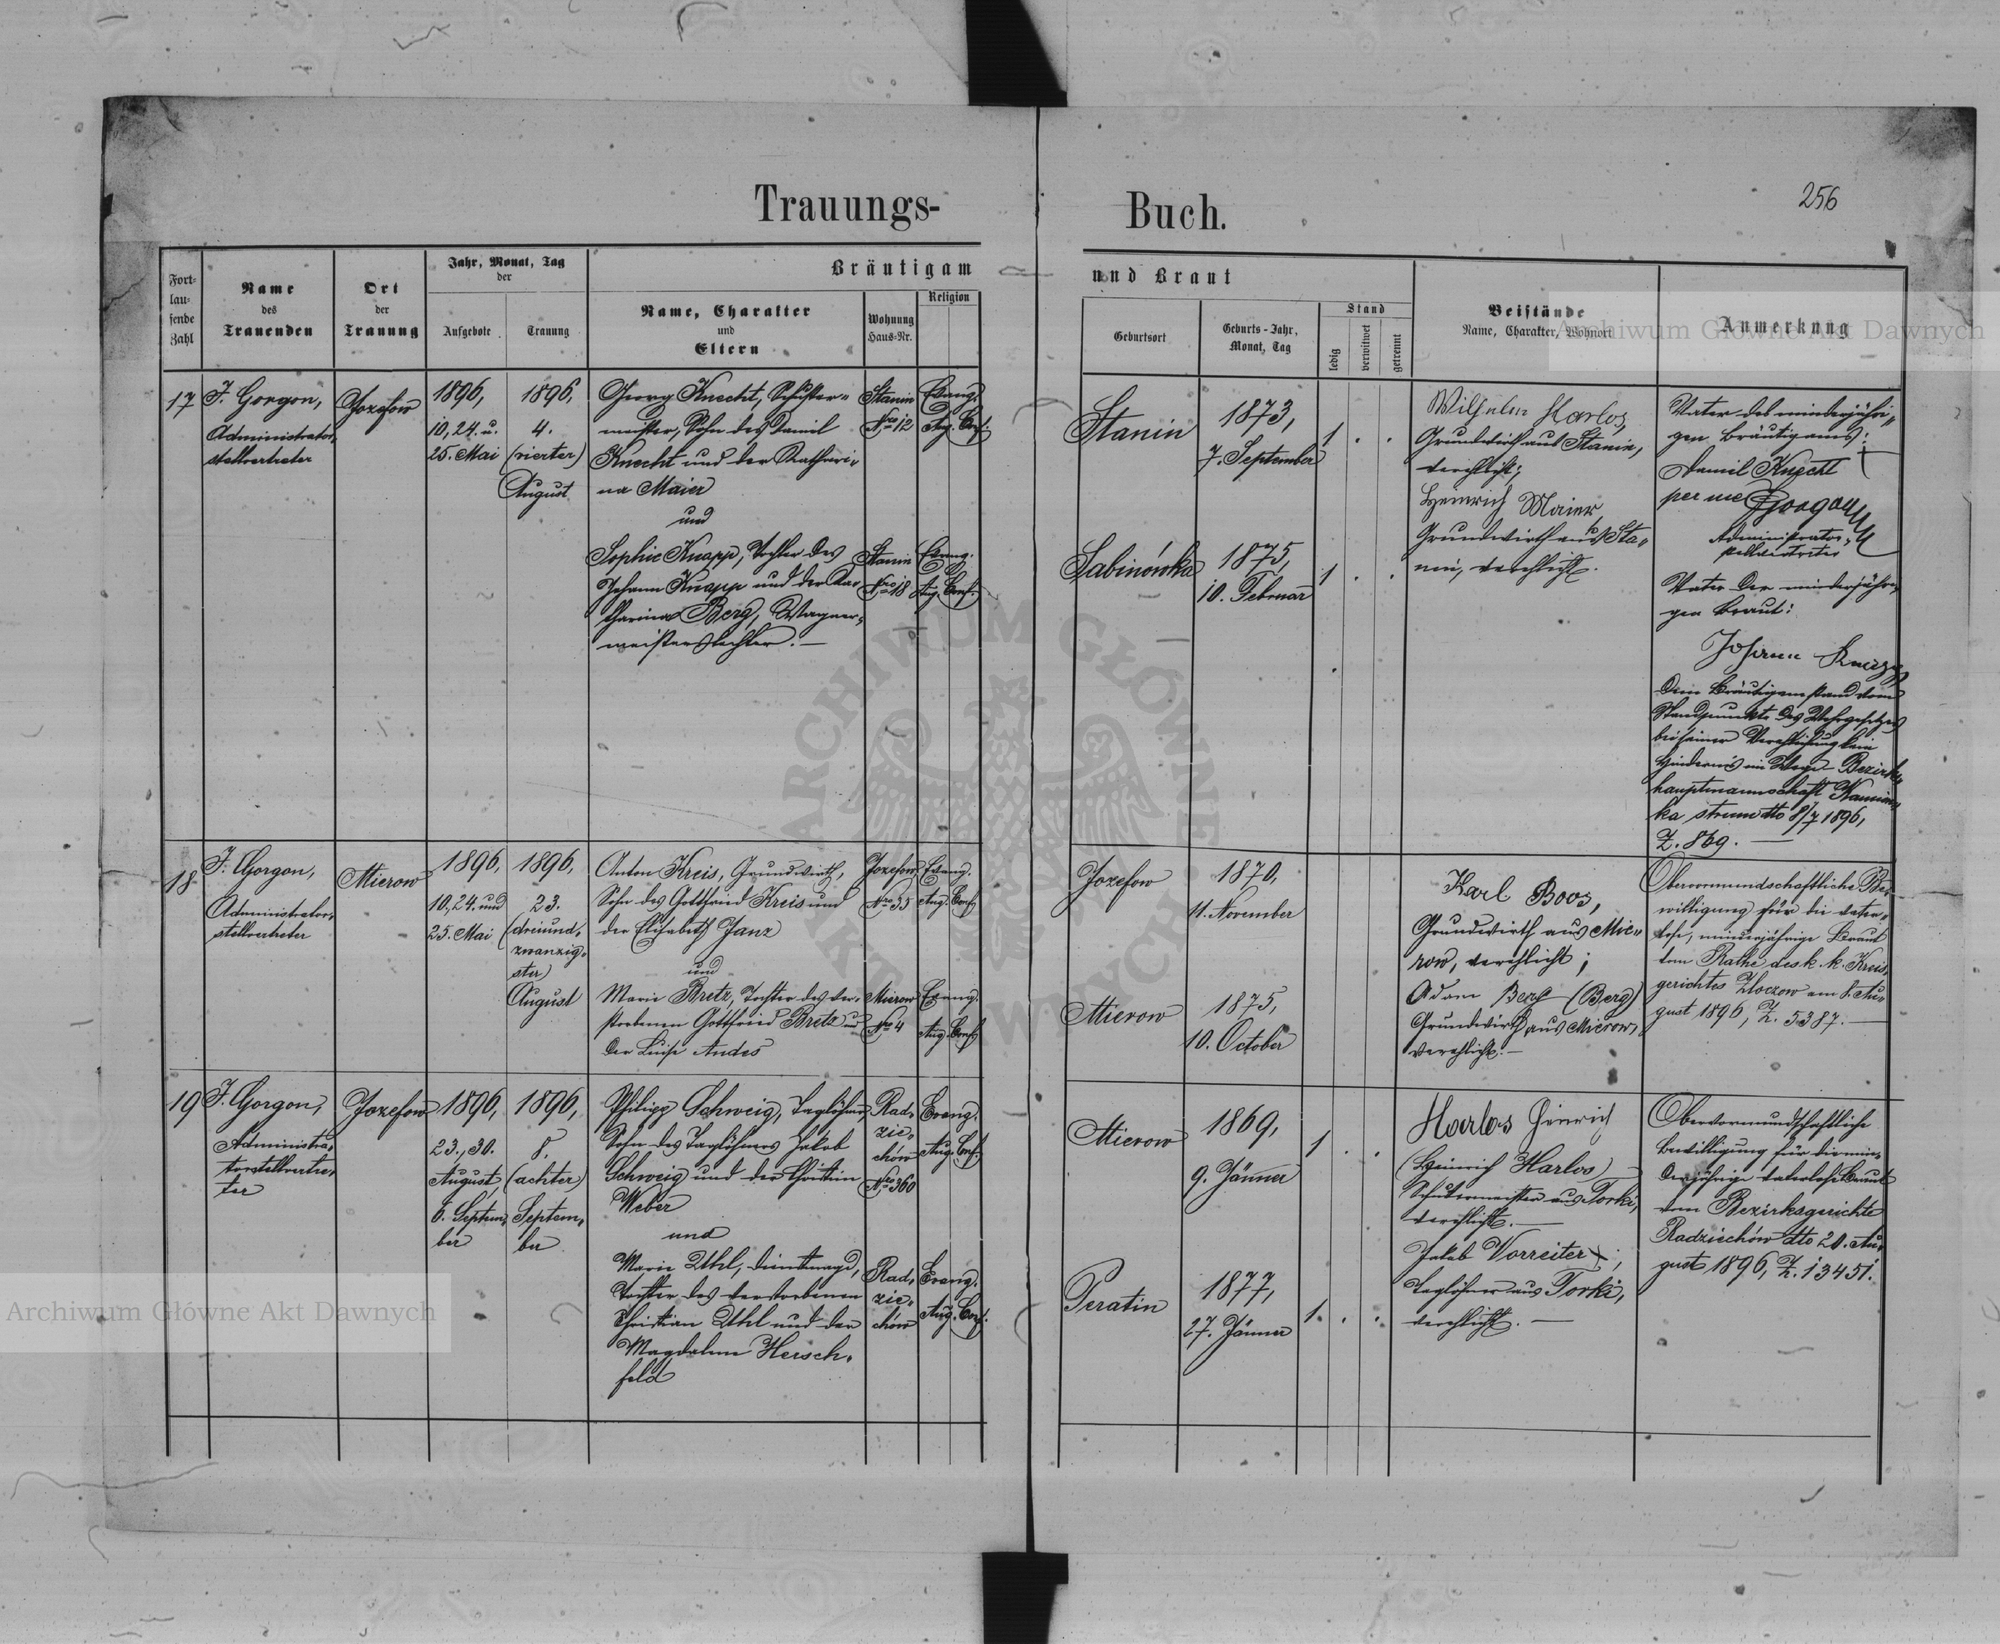 Trauungs-
Buch.
256
Fort-
lau-
fende
Zahl
Name
des
Trauenden
Ort
der
Trauung
Jahr, Monat, Tag
der
Aufgebote
Trauung
Bräutigam
und Braut
Name, Charakter
und
Eltern
Wohnung
Haus-Nr.
Religion
Geburtsort
Geburts-Jahr,
Monat, Tag
Stand
ledig
verwitwet
getrennt
Beistände
Name, Charakter, Wohnort
Anmerkung
Archiwum Główne Akt Dawnych
17
J. Gorgon,
Administrator-
stellvertreter
Jozefow
1896,
10., 24. u.
25. Mai
1896,
4.
(vierter)
August
Georg Knecht, Schuster-
meister, Sohn des Daniel
Knecht und der Kathari-
na Maier
und
Sophie Knapp, Tochter des
Johann Knapp und der Ka-
tharina Berg, Wagner-
meisterstochter.—
Stanin
Nro 12
Evang.
Aug. Conf.
Stanin
Nro 18
Evang.
Aug. Conf.
Stanin
1873,
7. September
1 . .
Sabinówka
1875,
10. Februar
1 . .
Wilhelm Harlos,
Grundwirth aus Stanin,
verehlicht;
Heinrich Maier,
Grundwirth aus Sta-
nin, verehlicht.
Vater des minderjähri-
gen Bräutigams:
Daniel Knecht
per me JGorgon
Administrator-
stellvertreter
Vater der minderjähri-
gen Braut:
Johann Knapp
Dem Bräutigam stand vom
Standpunkte des Wehrgesetzes
bei seiner Verehlichung kein
Hindernis im Wege. Bezirks-
hauptmannschaft Kamion-
ka strum dto 8/7 1896,
Z. 869.—
18.
J. Gorgon,
Administrator-
stellvertreter
Mierow
1896,
10., 24. und
25. Mai
1896,
23.
(dreiund-
zwanzig-
ster)
August
Anton Kreis, Grundwirth,
Sohn des Gottfried Kreis und
der Elisabeth Janz
und
Marie Bretz, Tochter des ver-
storbenen Gottfried Bretz und
der Luise Andes
Jozefow
Nro 35
Evang.
Aug. Conf.
Mierow
Nro 4
Evang.
Aug. Conf.
Jozefow
1870,
11. November
Mierow
1875,
10. October
Karl Boos,
Grundwirth aus Mie-
row, verehlicht;
Adam Berg (Berg)
Grundwirth aus Mierow,
verehlicht.—
Obervormundschaftliche Be-
willigung für die vater-
lose, minderjährige Braut
vom Rathe des k. k. Kreis-
gerichtes Zloczow am 8. Au-
gust 1896, Z. 5387.—
19
J. Gorgon,
Administra-
torstellvertre-
ter
Jozefow
1896,
23., 30.
August,
6. Septem-
ber
1896,
8.
(achter)
Septem-
ber
Philipp Schweig, Taglöhner,
Sohn des Taglöhners Jakob
Schweig und der Christine
Weber
und
Marie Uhl, Dienstmagd,
Tochter des verstorbenen
Christian Uhl und der
Magdalena Hersch-
feld
Rad-
zie-
chów
Nro 360
Evang.
Aug. Conf.
Rad-
zie-
chów
Evang.
Aug. Conf.
Mierow
1869,
9. Jänner
1 . .
Peratin
1877,
27. Jänner
1. . .
Harlos Heinrich
(Heinrich Harlos)—
Schustermeister aus Torki,
verehlicht.—
Jakob Vorreiter;
Taglöhner aus Torki,
verehlicht.—
Obervormundschaftliche
Bewilligung für die min-
derjährige vaterlose Braut
vom Bezirksgerichte
Radziechów dto 20. Au-
gust 1896, Z. 13451.
Archiwum Główne Akt Dawnych
ARCHIWUM GŁÓWNE AKT DAWNYCH